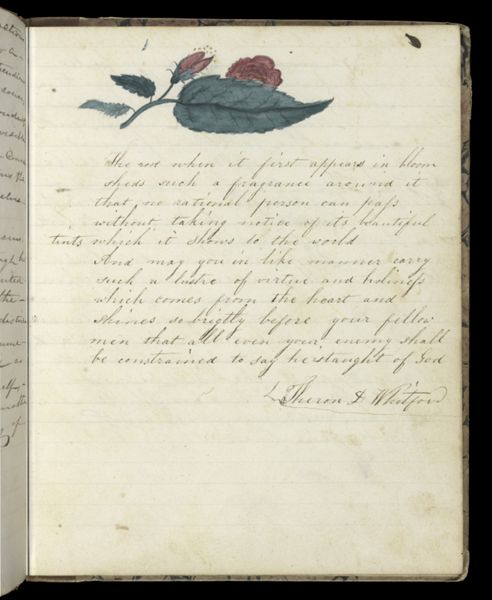 The rose when it first appears in bloom
sheds such a fragrance around it
that no rational person can pass
without taking notice of its beautiful
tints which it shows to the world
And may you in like manner carry
such a lustre of virtue and holiness
which comes from the heart and
shines so brigtly before your fellow
men that all even your enemy shall
be constrained to say he staught of God
Theron D Whitford